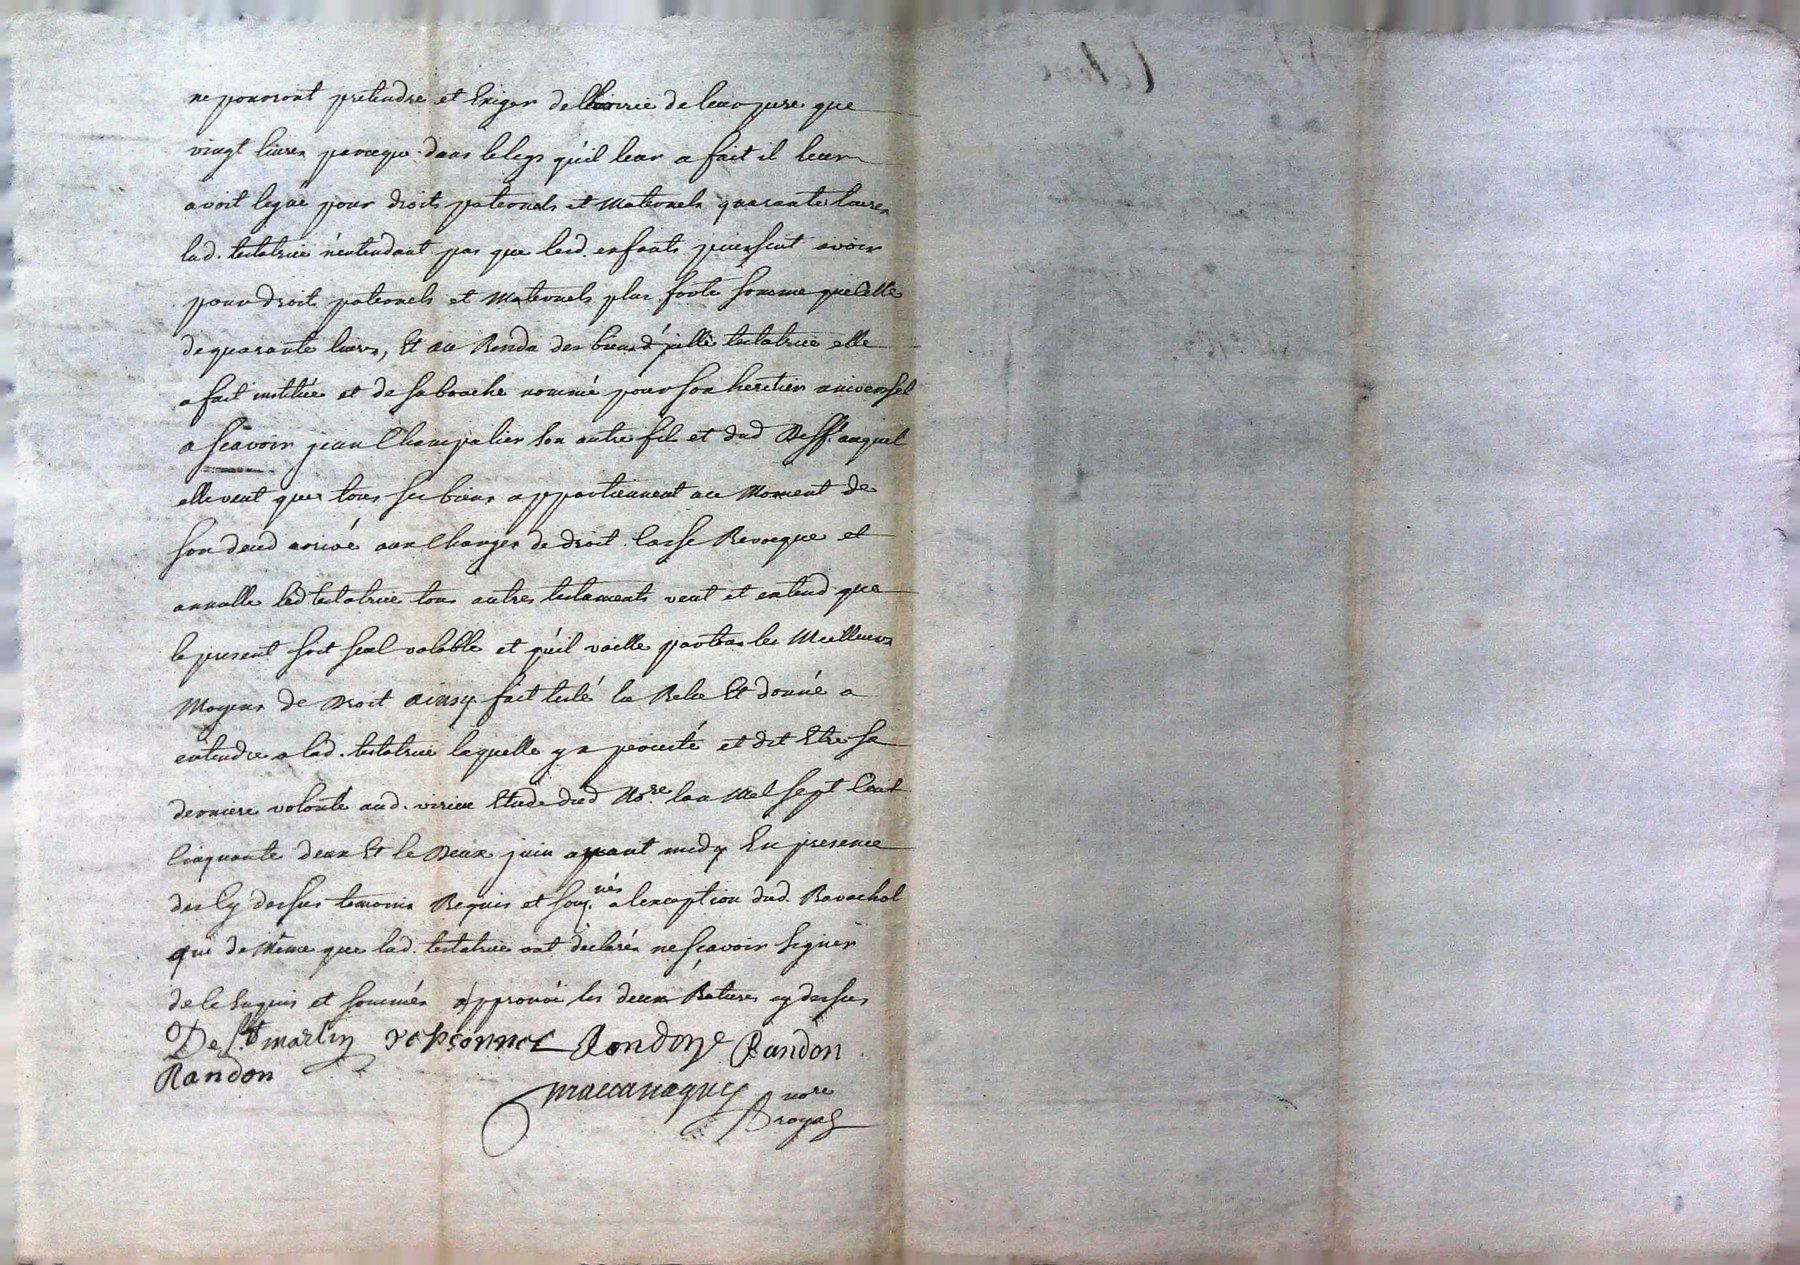 ne pourront pretendre et Exiger de lhoirie de leur pere que
vingt livres parceque dans le legs qu'il leur a fait il leur
avoit legué pour droits paternels et Maternels quarante livres
lad. testatrice n'entendant pas que lesd. enfants puissent avoir
pour droits paternels et Maternels plus forte somme que Celle
de quarante livres, Et au Residu des biens d'jcelle testatrice elle
a fait institué et de sa bouche nommé pour son heritier universel
a scavoir jean Champalier son autre fils et dud Deff. auquel
elle veut que tous ses biens appartiennent au Moment de
son deced arrivé aux Charges de droit Casse Revoque et
annulle lad testatrice tous autres testaments veut et entend que
le present soit seul valable et qu'il vaille par tous les Meilleurs
Moyens de Droit ainsy fait testé lu Relu Et donné a
entendre a lad. testatrice laquelle y a percisté et dit Etre sa
derniere volonté aud. virieu Etude dud No.re lan Mil sept Cent
Cinquante deux Et le Deux juin appant midy En presence
des Cy dessus temoins Requis et soug.nés a lexception dud. Ravachol
qui de Même que lad. testatrice ont déclarés ne scavoir signer
de ce Enquis et sommés approuvé les deux Ratures cy dessus
De St martin Rondoye Randon
Randon
nore
royal